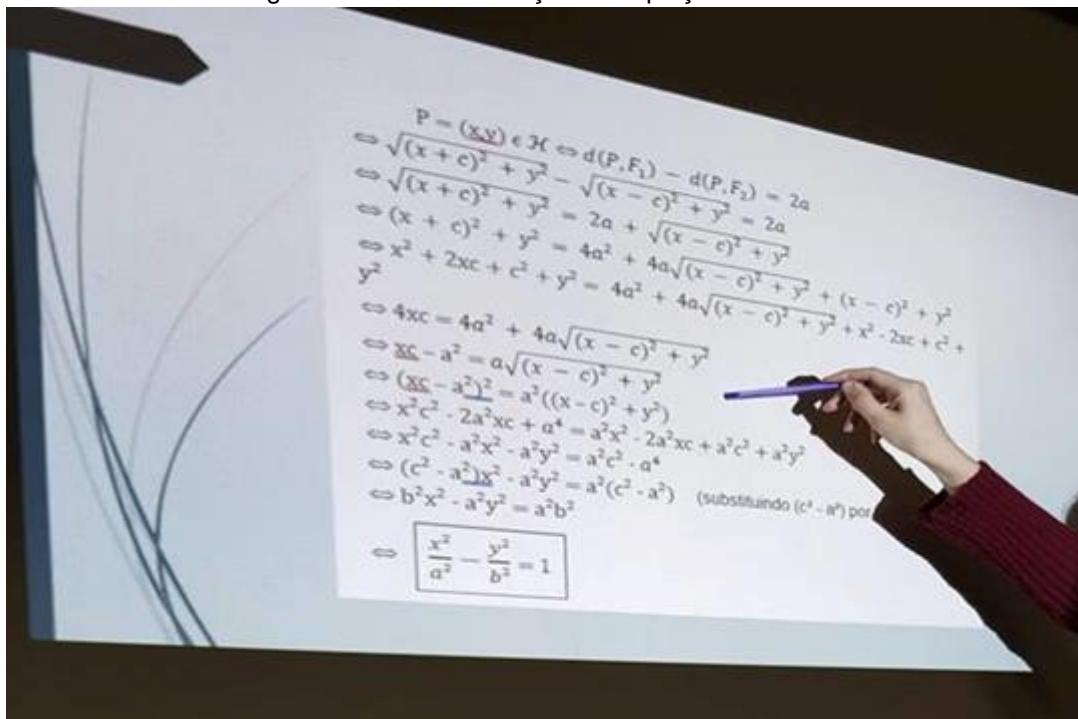 P = (x,y) ϵ ℋ ⇔ d(P,F₁) − d(P,F₂) = 2a
⇔ √((x + c)² + y²) − √((x − c)² + y²) = 2a
⇔ √((x + c)² + y²) = 2a + √((x − c)² + y²)
⇔ (x + c)² + y² = 4a² + 4a√((x − c)² + y²) + (x − c)² + y²
⇔ x² + 2xc + c² + y² = 4a² + 4a√((x − c)² + y²) + x² - 2xc + c² +
y²
⇔ 4xc = 4a² + 4a√((x − c)² + y²)
⇔ xc – a² = a√((x − c)² + y²)
⇔ (xc – a²)² = a²((x – c)² + y²)
⇔ x²c² - 2a²xc + a⁴ = a²x² - 2a²xc + a²c² + a²y²
⇔ x²c² - a²x² - a²y² = a²c² - a⁴
⇔ (c² - a²)x² - a²y² = a²(c² - a²) (substituindo (c² - a²) por
⇔ b²x² - a²y² = a²b²
⇔ x²/a² − y²/b² = 1